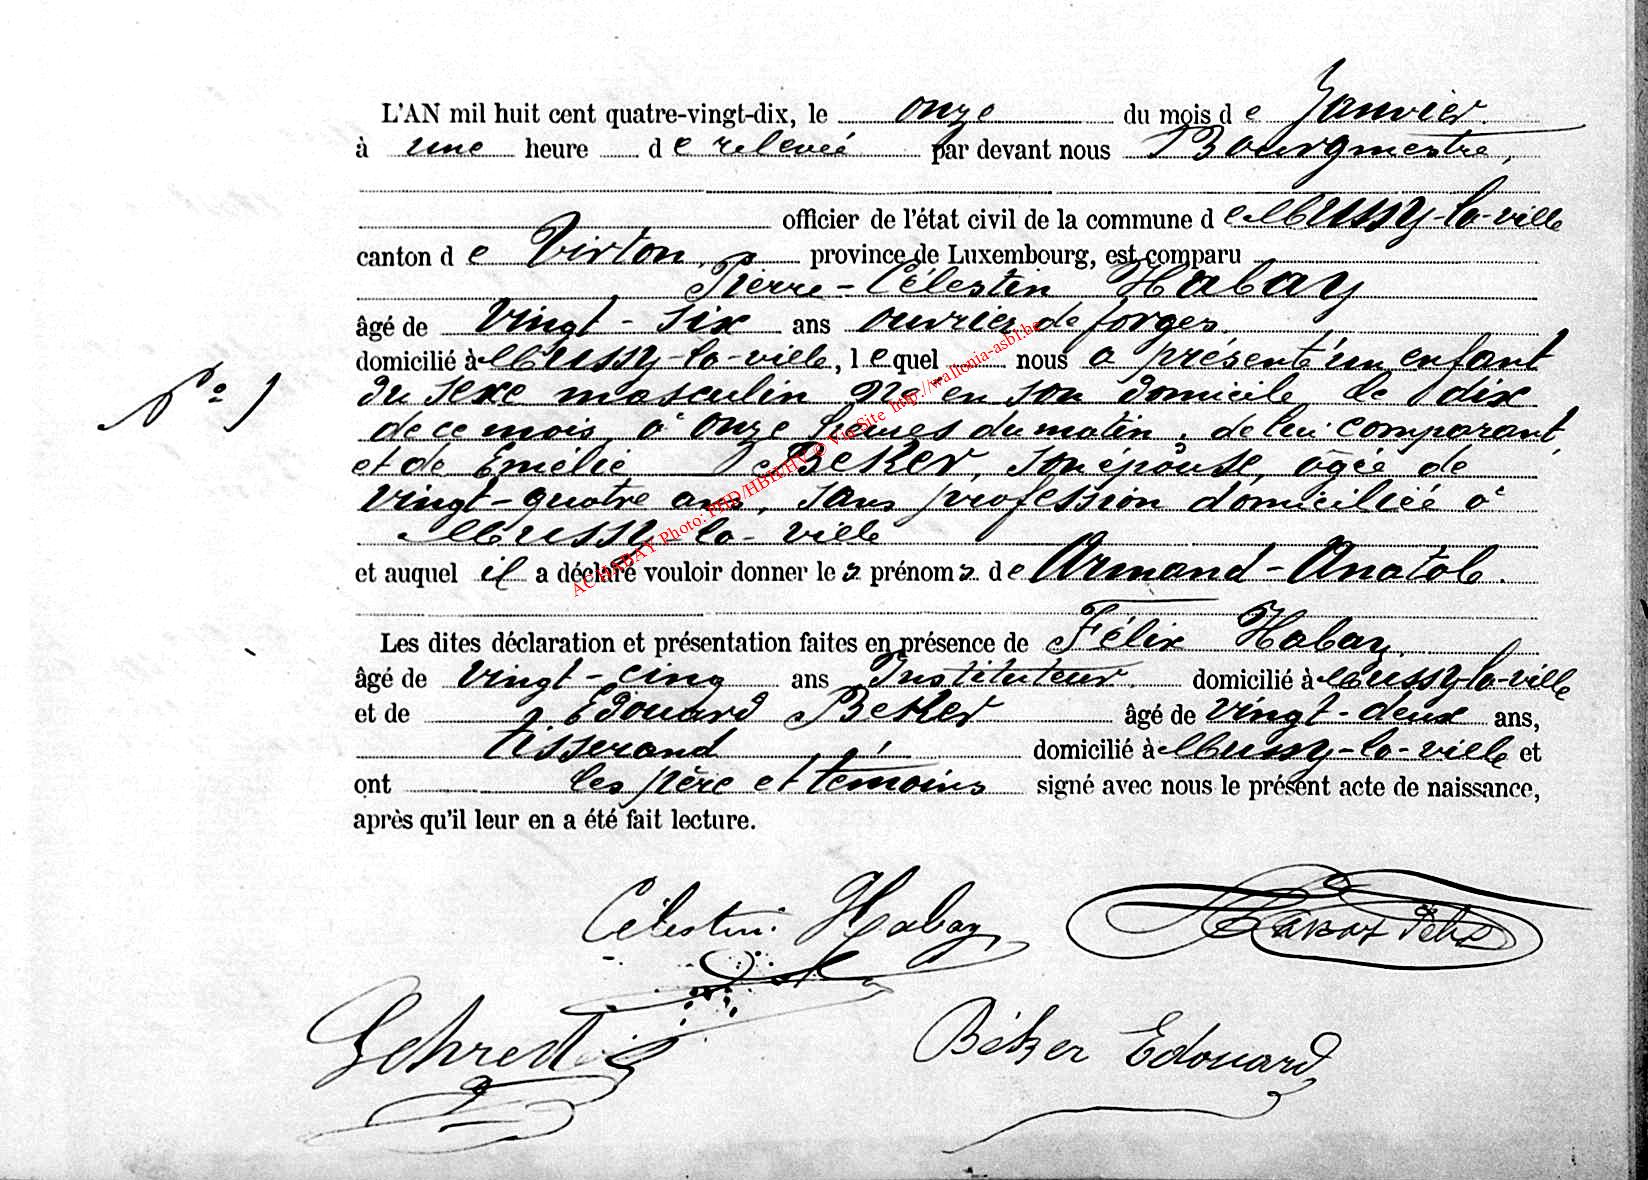 L'AN mil huit cent quatre-vingt-dix, le onze du mois de Janvier.
à une heure de relevée par devant nous Bourgmestre,
officier de l'état civil de la commune de Mussy-la-ville
canton de Virton, province de Luxembourg, est comparu
Pierre-Célestin Habay
âgé de vingt-six ans ouvrier de forges.
domicilié à Mussy-la-ville, lequel nous a présenté un enfant
du sexe masculin né en son domicile le dix
de ce mois, à onze heures du matin, de lui comparant,
et de Emélie Beker, son épouse, âgée de
vingt-quatre ans, sans profession domiciliée à
Mussy-la-ville
et auquel il a déclaré vouloir donner les prénoms de Armand-Anatole.
Les dites déclaration et présentation faites en présence de Félix Habay.
âgé de vingt-cinq ans Instituteur. domicilié à Mussy-la-ville
et de Edouard Beker âgé de vingt-deux ans,
tisserand domicilié à Mussy-la-ville et
ont les père et témoins signé avec nous le présent acte de naissance,
après qu'il leur en a été fait lecture.
N° 1
AC HABAY Photo: PHD/HBH/HV © Via Site http://wallonia-asbl.be
Célestin Habay
Habay Félix
Béker Edouard